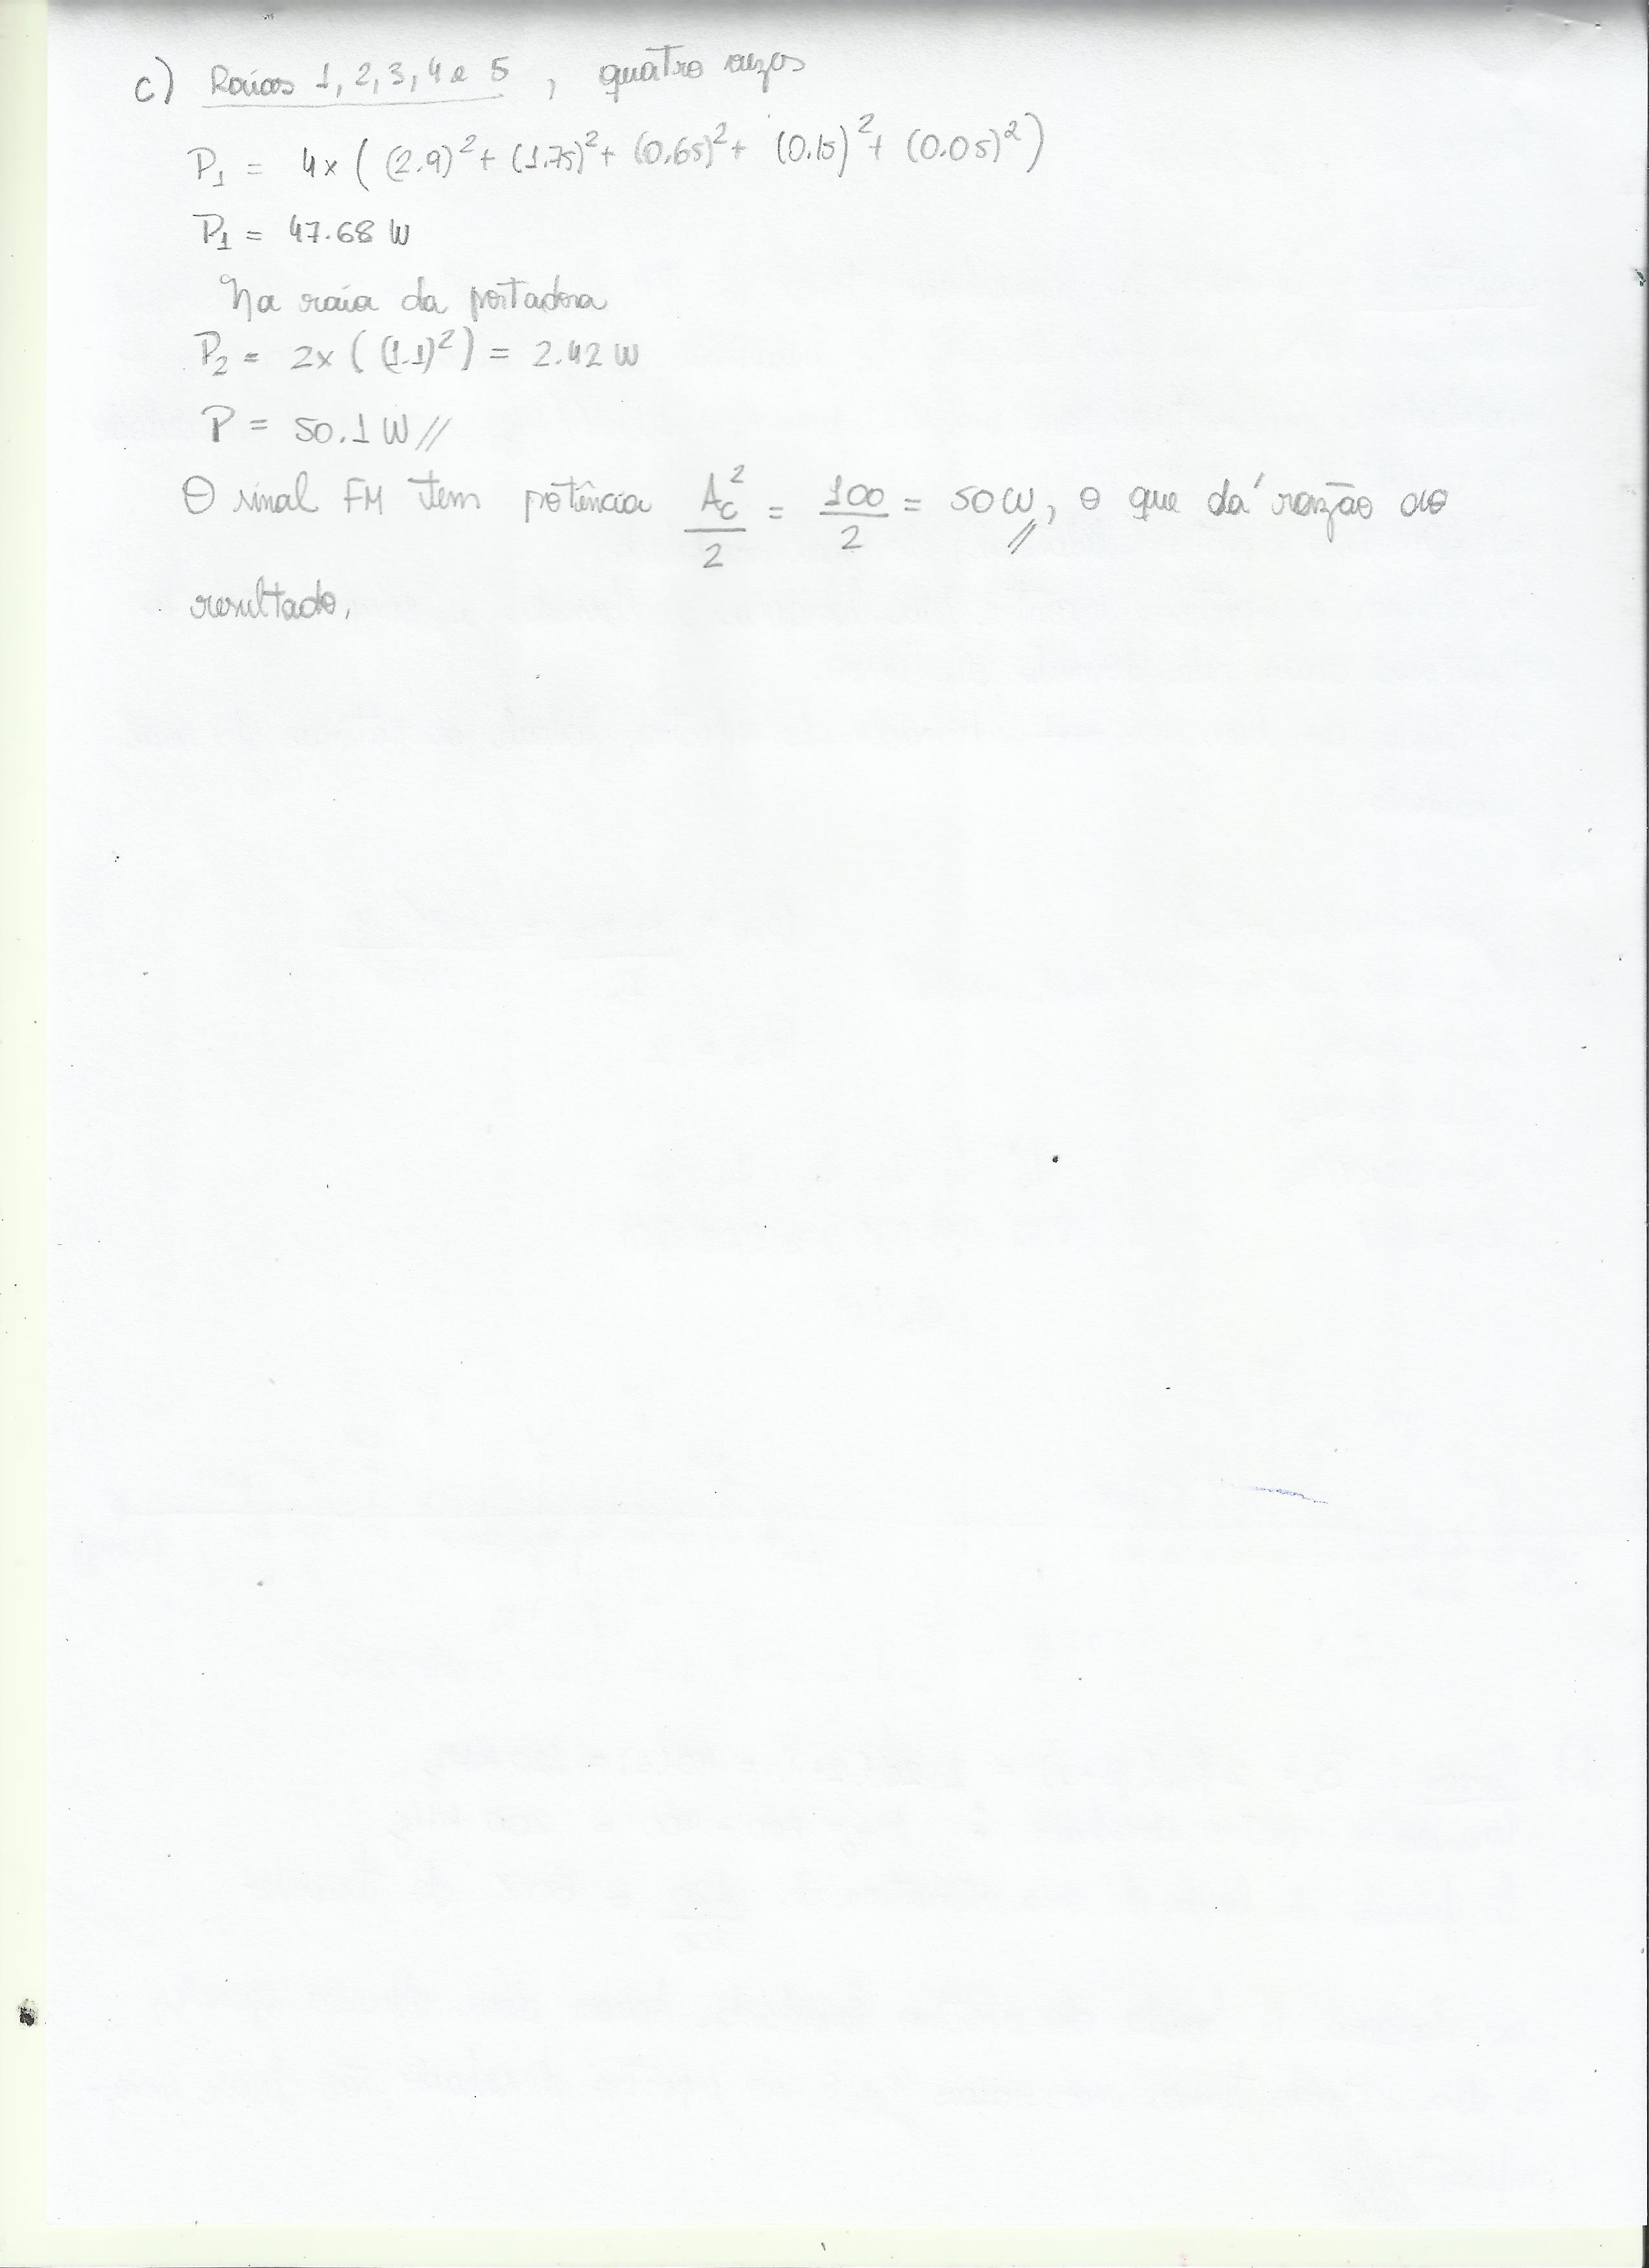 c) Raias 1, 2, 3, 4 e 5 , quatro vezes
P₁ = 4x ( (2.9)² + (1.75)² + (0.65)² + (0.15)² + (0.05)² )
P₁ = 47.68 W
Na raia da portadora
P₂ = 2x ( (1.1)² ) = 2.42 W
P = 50.1 W //
O sinal FM tem potência A_c²/2 = 100/2 = 50 W //, o que dá razão ao
resultado.